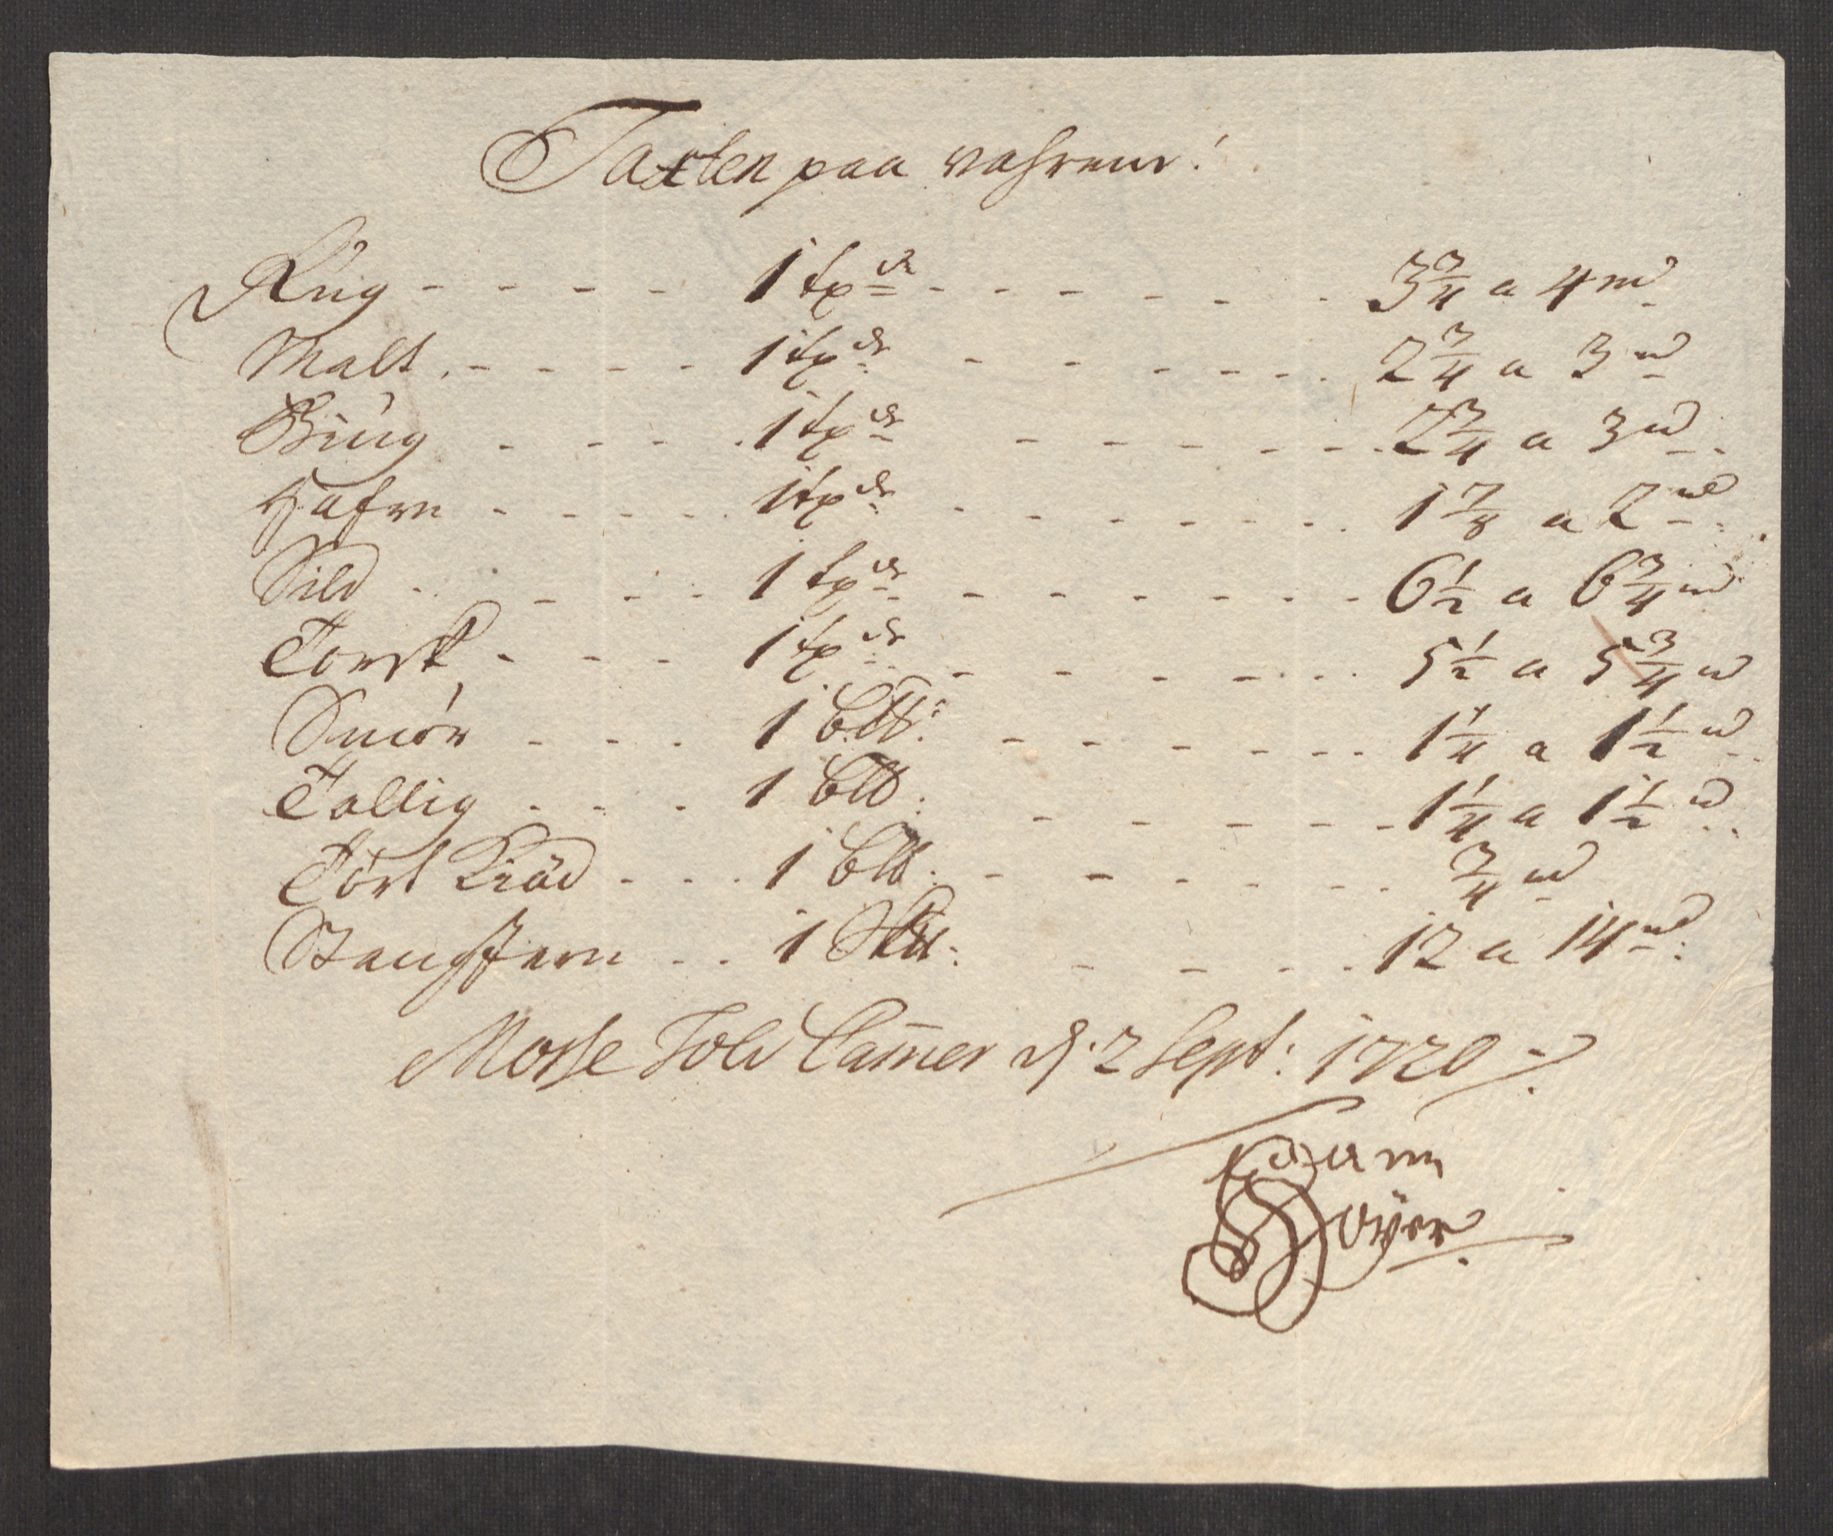 Taxten paa vahrene!
Rúg - - - - 1 tøde - - - - - 3 3/4 a 4 rd
Malt - - - - 1 tøde - - - - - 2 3/4 a 3 rd
Biúg - - - - 1 tøde - - - - - 2 3/4 a 3 rd
Hafre - - - - 1 tøde - - - - - 1 7/8 a 2 rd
Sild - - - - 1 tøde - - - - - 6 1/2 a 6 3/4 rd
Torsk - - - 1 tøde - - - - - 5 1/2 a 5 3/4 rd
Smör - - - 1 - - - - - 1 1/4 a 1 1/2 rd
Tallig - - - 1 - - - - - 1 1/4 a 1 1/2 rd
Tört Kiöd - - - 1 - - - - - 3/4 rd
Stangjern - - 1 - - - - 12 a 14 rd
Mosse Told Camer d: 2 Sept: 1720
Höyer